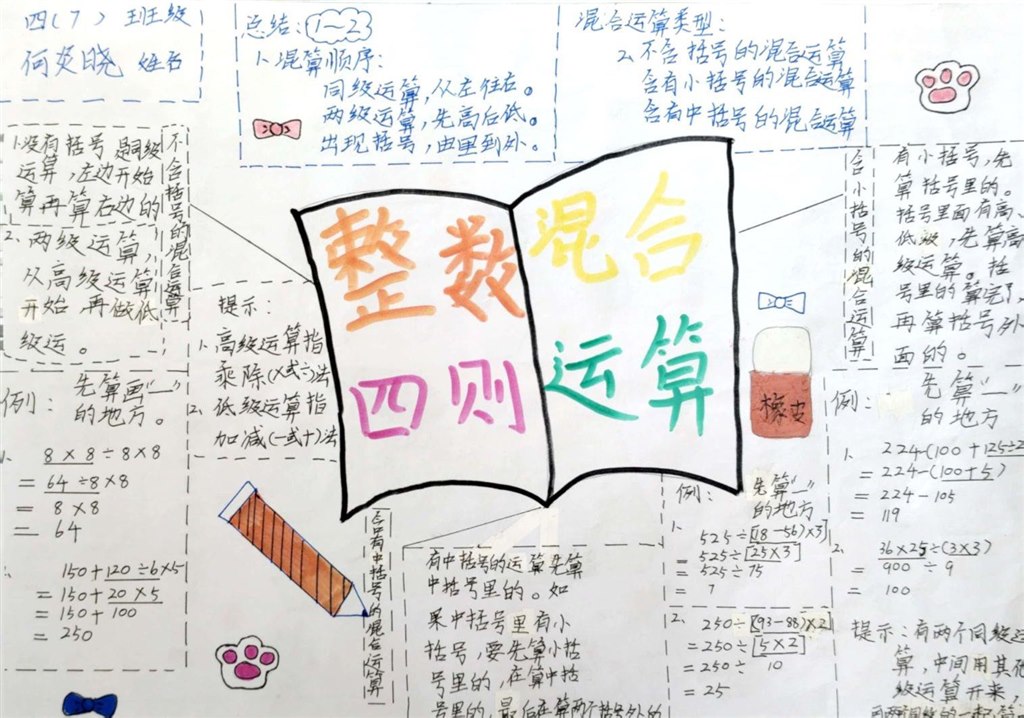 四(7) 班级
何炎晓 姓名
总结:
1~2
1、混算顺序:
同级运算,从左往右。
两级运算,先高后低。
出现括号,由里到外。
混合运算类型:
2、不含括号的混合运算
含有小括号的混合运算
含有中括号的混合运算
不含括号的混合运算
1.没有括号是同级
运算,左边开始
算再算右边的
2、两级运算,
从高级运算
开始,再做低
级运。
提示:
1、高级运算指
乘除(×或÷)法
2、低级运算指
加减(一或十)法
整数
四则
混合
运算
含小括号的混合运算
有小括号,先
算括号里的。
括号里面有高、
低级,先算高
级运算。括
号里的算完了,
再算括号外
面的。
橡皮
例: 先算画“一”
的地方。
1、
8×8÷8×8
= 64÷8×8
= 8×8
= 64
150+120÷6×5
=150+20×5
=150+100
= 250
含有中括号的混合运算
有中括号的运算先算
中括号里的。如
果中括号里有小
括号,要先算小括
号里的,在算中括
号里的,最后在算两个括号外的
例: 先算“一”
的地方
1、
525÷[(18-56)×3]
=525÷[25×3]
=525÷75
= 7
2、 250÷[(93-88)×2]
=250÷[5×2]
=250÷ 10
=25
例: 先算“一”
的地方
1、 224-(100+125÷2
= 224-(100+5)
= 224-105
= 119
2、 36×25÷(3×3)
= 900 ÷ 9
= 100
提示:有两个同级运
算,中间用其他
级运算开来,